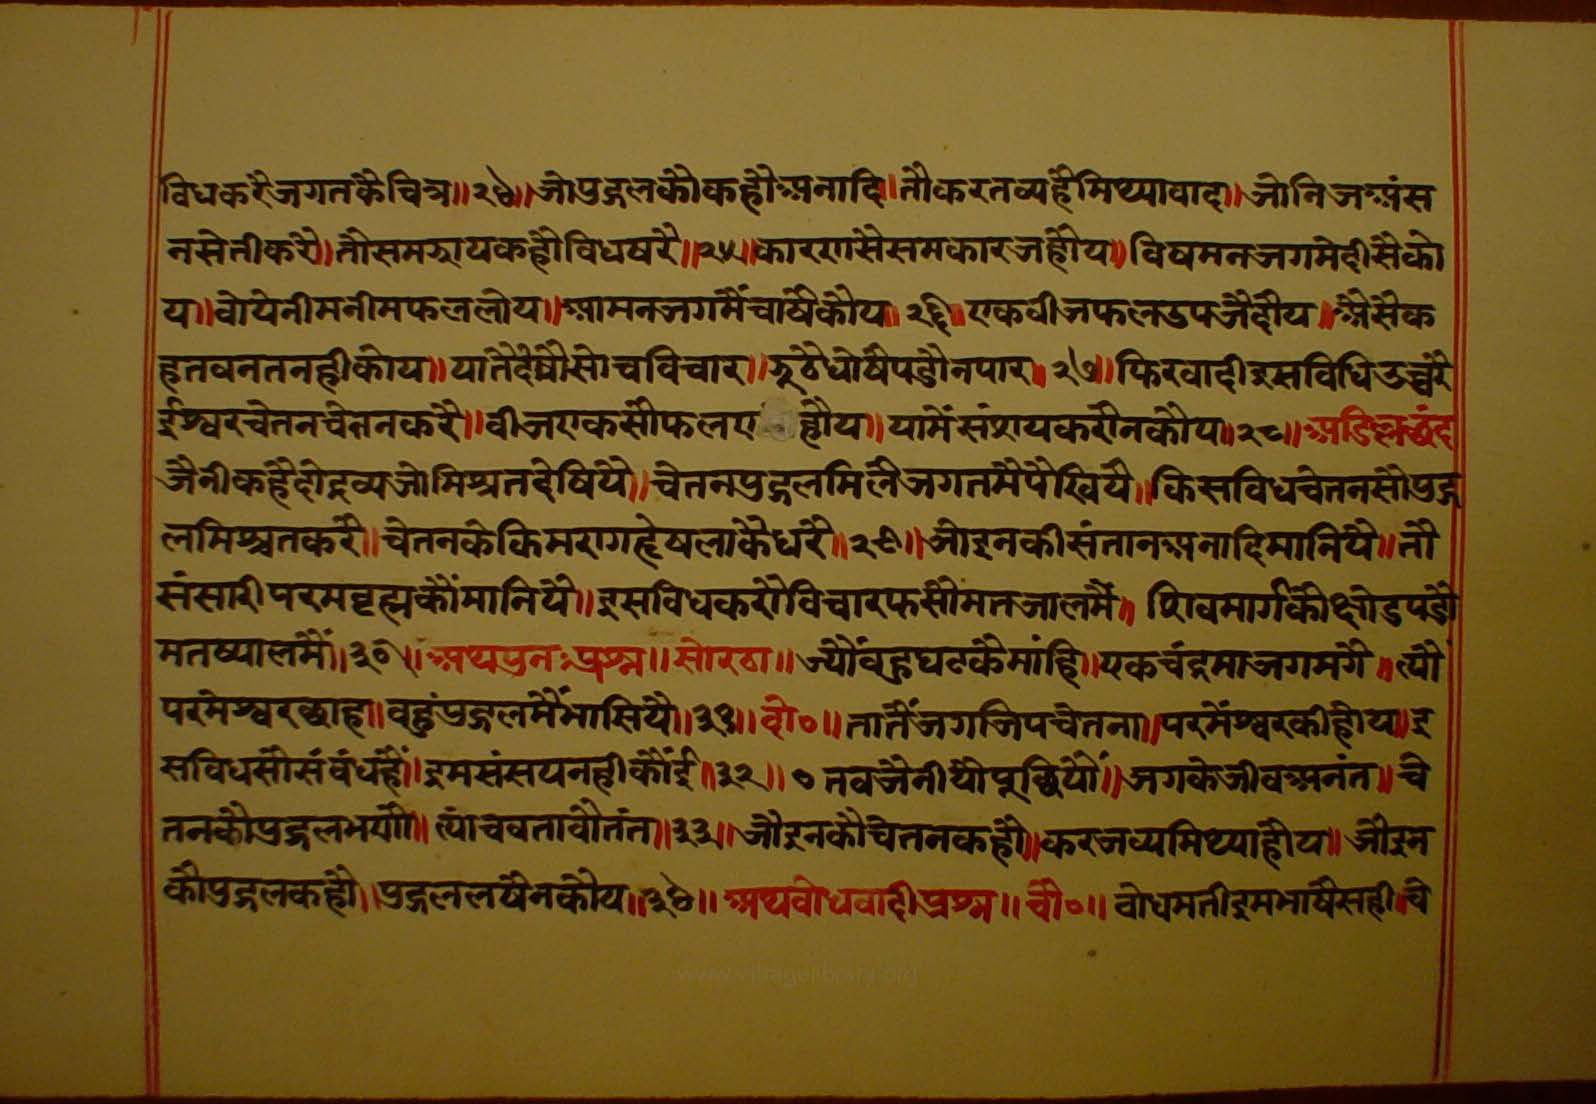 विधकरैजगतकैचित्र॥२४॥जोपुद्गलकौकहौअनादि॥तौकरतव्यहैमिथ्यावाद॥जोनिजअंस
नसेतीकरौ॥तौसमझायकहौविधषरै॥२५॥कारणसैसमकारजहोय॥विषमनजगमेदीसैको
य॥वोयेनीमनीमफललोय॥आमनजगमैंचाषैकोय॥२६॥एकवीजफलउपजैदोय॥अैसैक
हतवनतनहीकोय॥यातैदेषौसोचविचार॥झूठेधोषेपडौनपार॥२७॥फिरवादीइसविधिउच्चरै
ईश्वरचेतनचेतनकरै॥वीजएकसौफलए होय॥यामेंसंशयकरौनकोय॥२८॥अडिल्लछंद
जैनीकहैदोद्रव्यजोमिश्रतदेषियै॥चेतनपुद्गलमिलैजगतमैपेखियै॥किसविधचेतनसौपुद्ग
लमिश्रतकरै॥चेतनकेकिमरागद्वेषलाकैधरै॥२९॥जोइनकीसंतानअनादिमानियै॥तौ
संसारीपरमवृह्मकौंमानियै॥इसविधकरौविचारफसौमतजालमै॥शिवमार्गकौछोडपडौ
मतष्यालमैं॥३०॥अथपुनःप्रश्न॥सोरठा॥ज्यौंवहुघटकैमांहि॥एकचंद्रमाजगमगै॥त्यौं
परमेश्वरछाह॥वहुंपुद्गलमैंभासियै॥३१॥दो०॥तातैंजगजियचेतना॥परमेंश्वरकीहोय॥इ
सविधसौसंवंधहै॥इमसंसयनहीकोंई॥३२॥०तवजैनीयौपूछियौं॥जगकेजीवअनंत॥चे
तनकौपुद्गलभयौ॥त्यांचवतावौतंत॥३३॥जौइनकौचेतनकहौ॥करजव्यमिथ्याहोय॥जौइन
कौपुद्गलकहौ॥पुद्गललषैनकोय॥३४॥अथवोधवादीप्रश्न॥चौ०॥वोधमतीइमभाषैसही॥चे